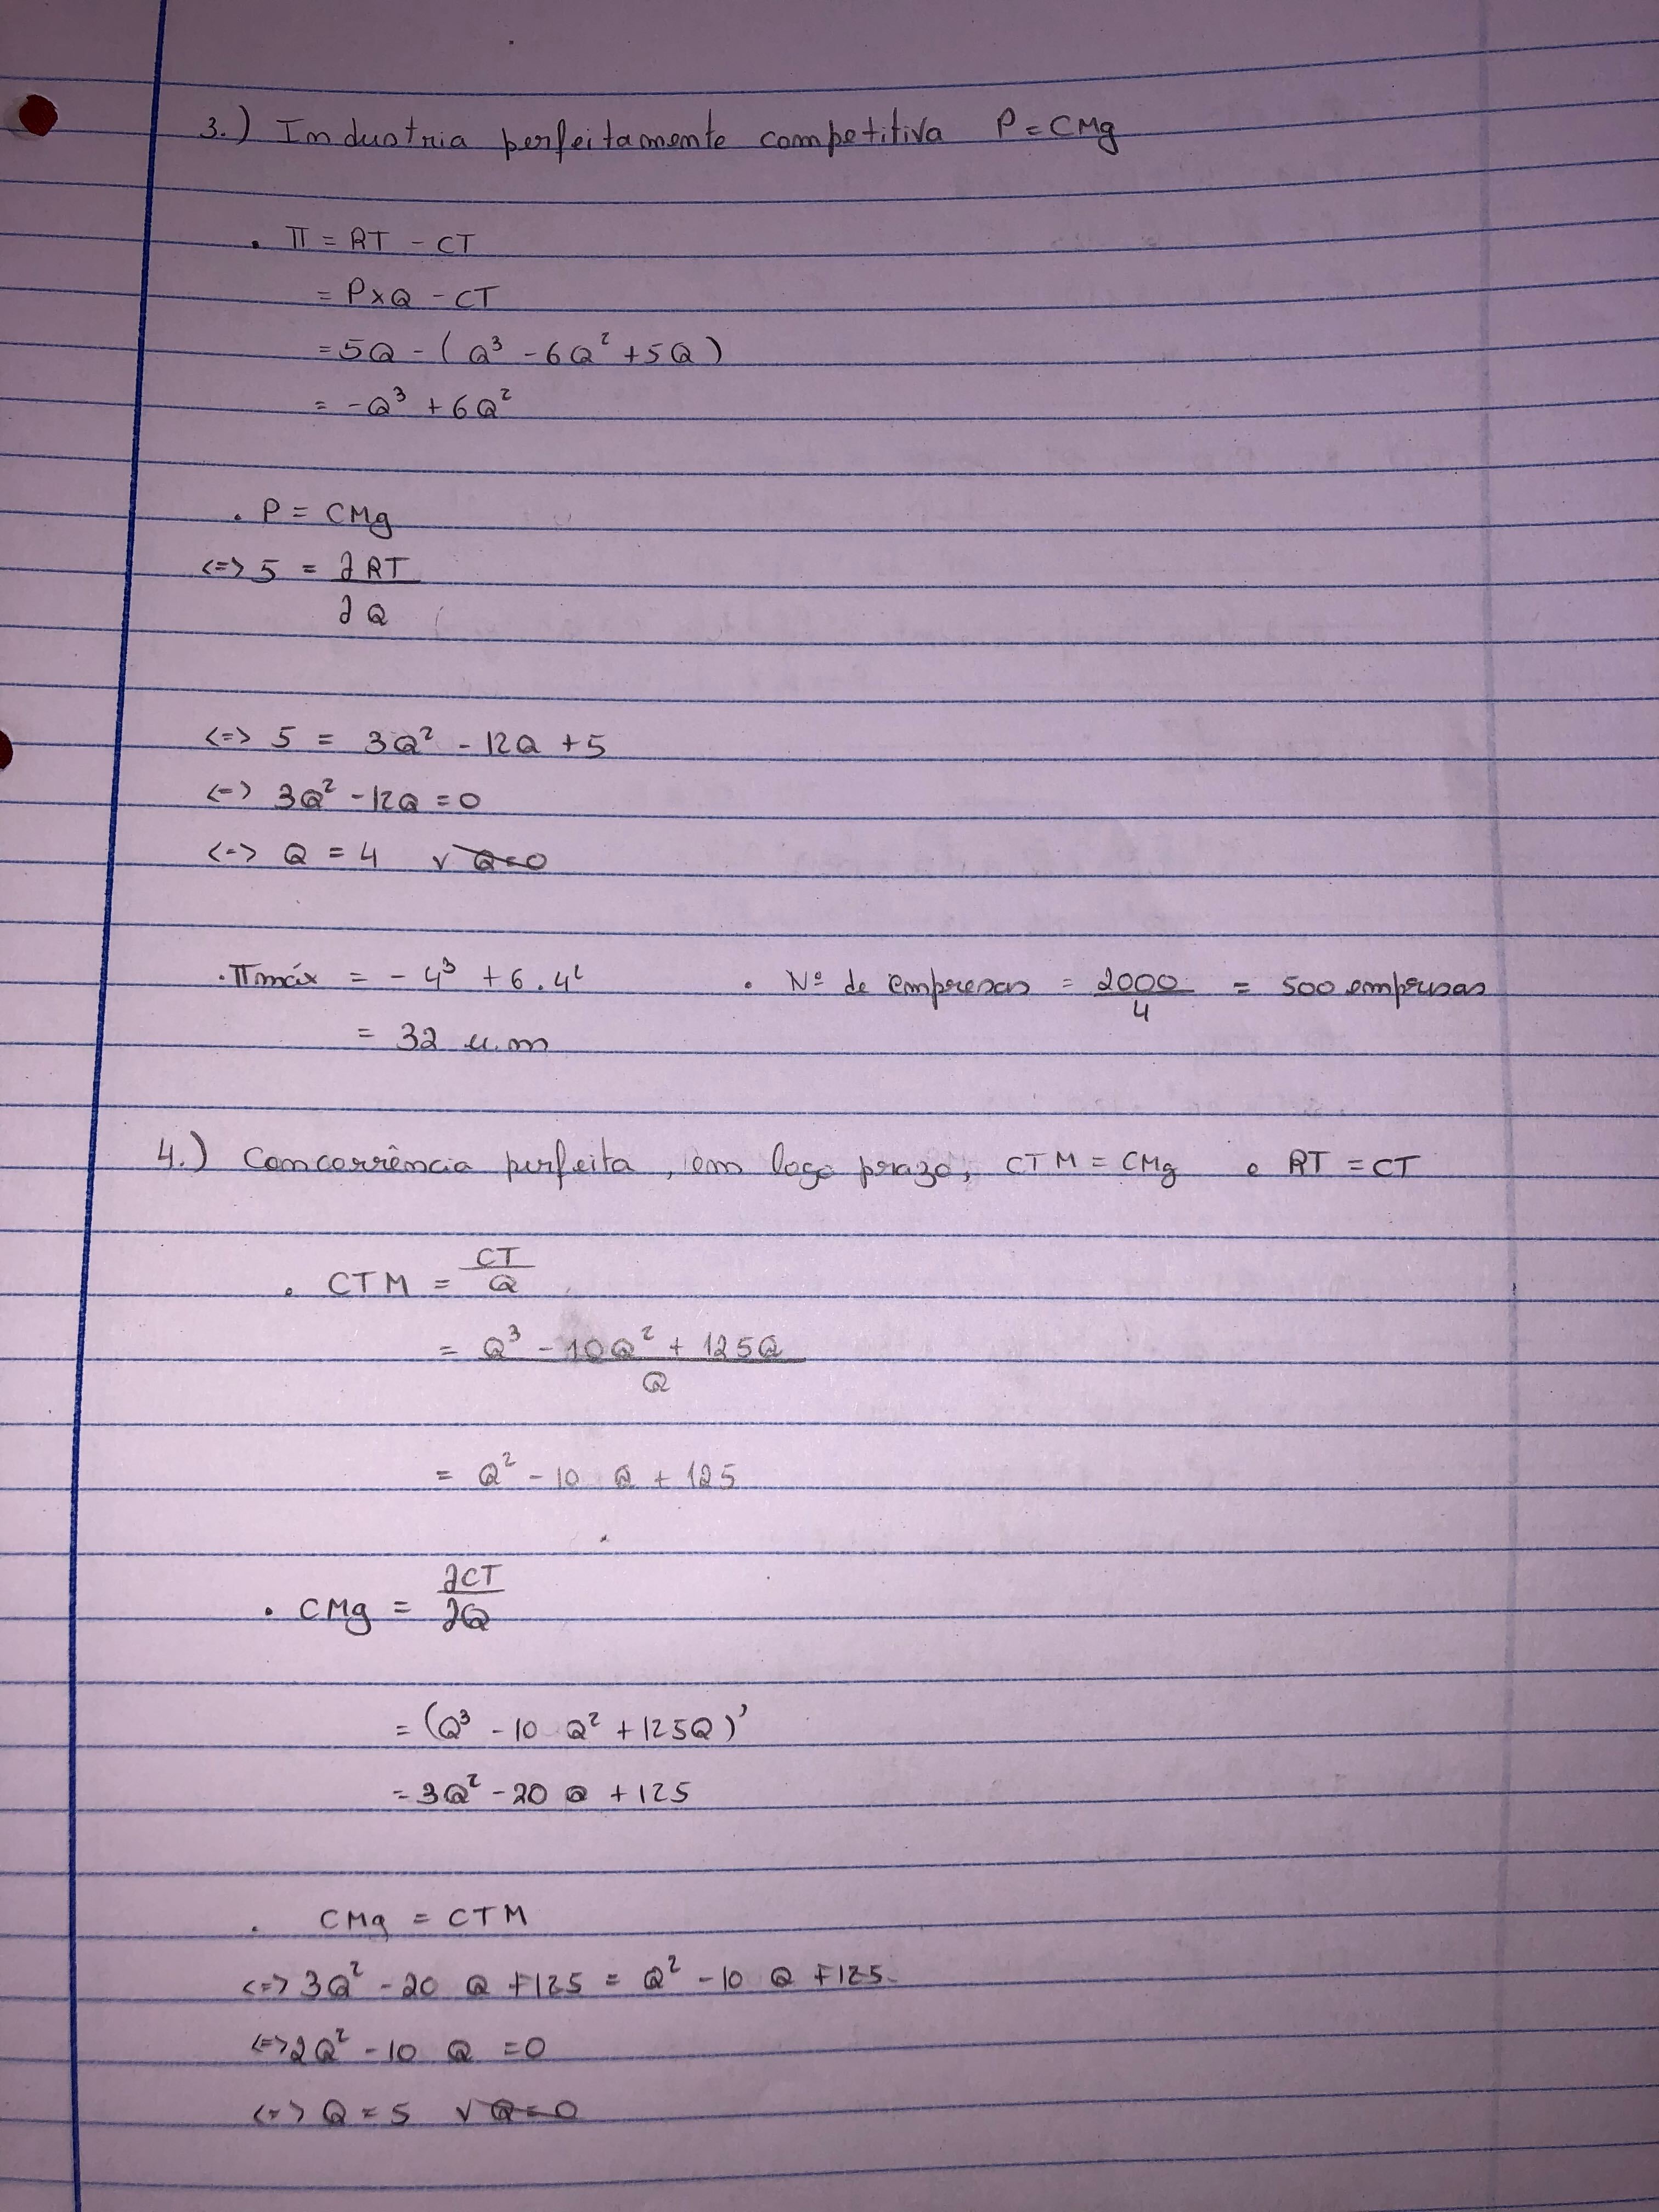 3.) Industria perfeitamente competitiva P = CMg
• π = RT - CT
= P x Q - CT
= 5Q - ( Q³ - 6Q² + 5Q )
= -Q³ + 6Q²
• P = CMg
<=> 5 = ∂RT
∂Q
<=> 5 = 3Q² - 12Q + 5
<=> 3Q² - 12Q = 0
<=> Q = 4 v Q=0
• π máx = - 4³ + 6 . 4² • Nº de empresas = 2000/4 = 500 empresas
= 32 u.m
4.) Concorrência perfeita, em logo prazo, CTM = CMg e RT = CT
• CTM = CT/Q
= Q³ - 10Q² + 125Q
Q
= Q² - 10 Q + 125
• CMg = ∂CT/∂Q
= (Q³ - 10 Q² + 125Q)'
= 3Q² - 20 Q + 125
• CMg = CTM
<=> 3Q² - 20 Q + 125 = Q² - 10 Q + 125
<=> 2Q² - 10 Q = 0
<=> Q = 5 v Q=0